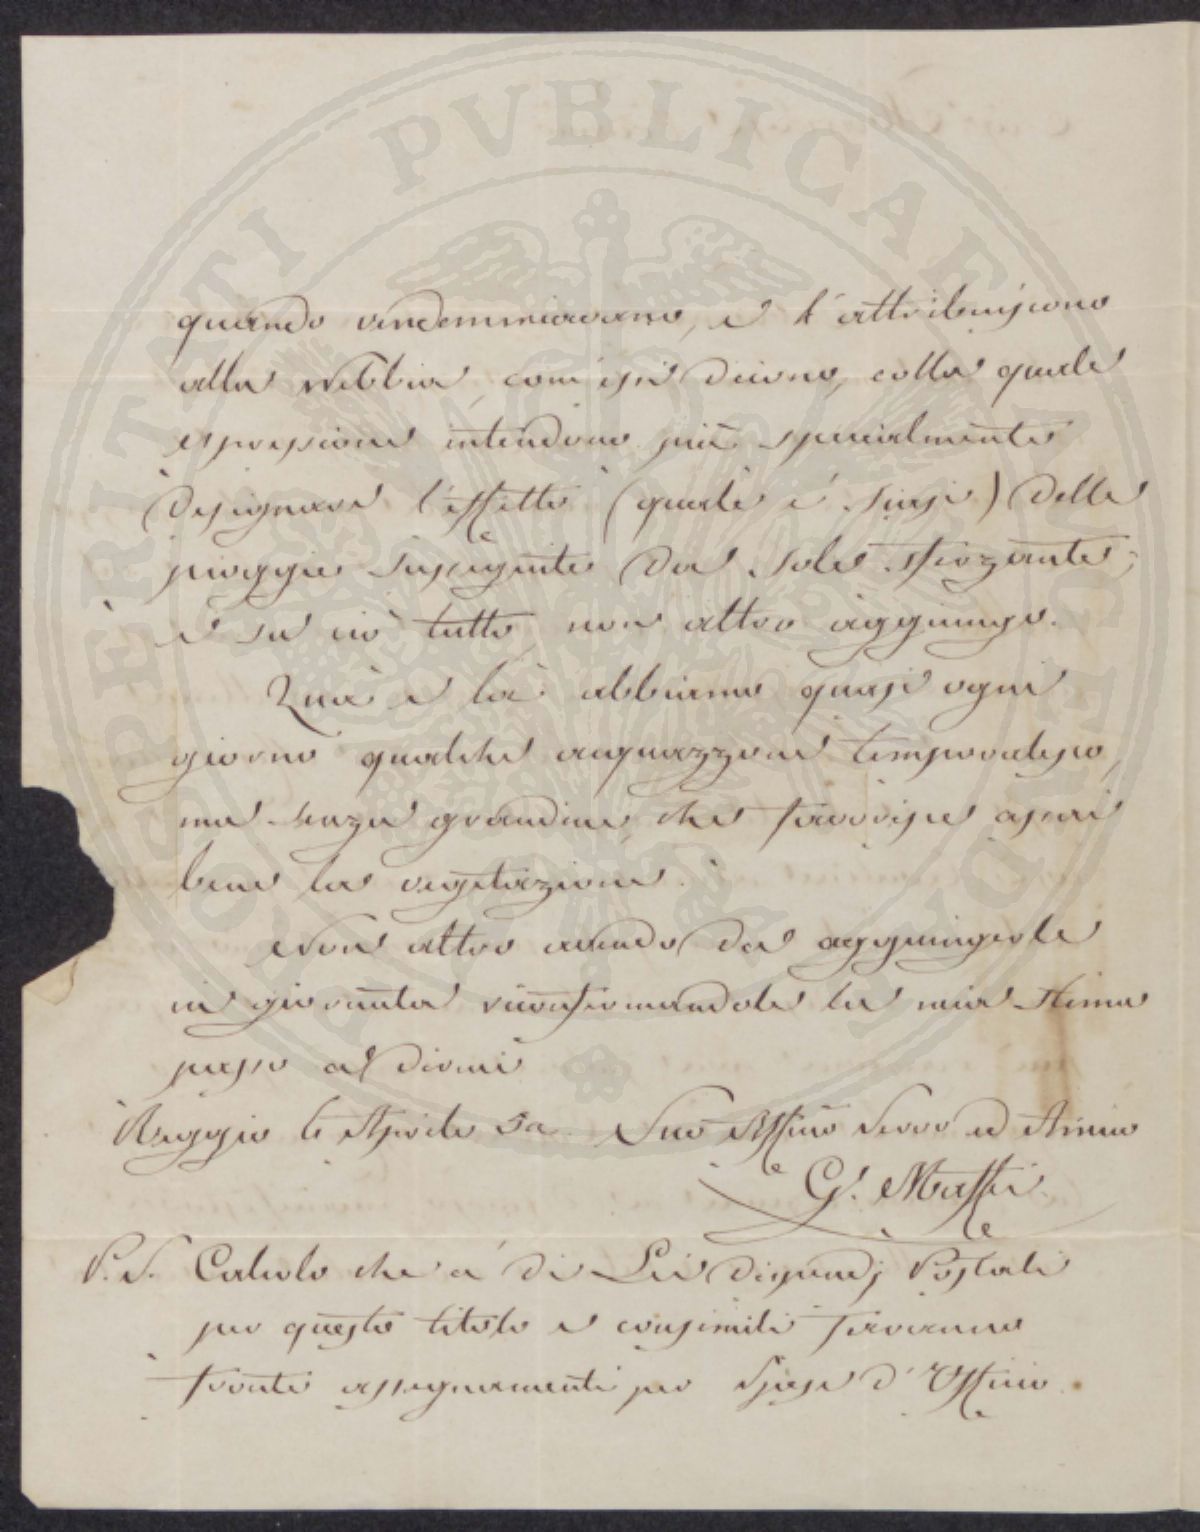 PROSPERITATI PVBLICAE AVGENDAE
quando vendemmiavano, e l'attribuiscono
alla Nebbia, com'essi dicono, colla quale
espressione intendono più specialmente
designare l'effetto (qual'è siasi) della
pioggia susseguita da sole sferzante;
e su ciò tutto non altro aggiungo.
Quà e là abbiamo quasi ogni
giorno qualche acquazzone temporalesco,
ma senza grandine, che favorisce assai
bene la vegetazione.
Non altro avendo da aggiungerle
mi riconfermandole la mia stima
passo a dirmi
Reggio 6 Aprile 52 Suo Affmo Servo ed Amico
G. Maffei
P.S. Calcolo che a' di Lei Postali
per questo titolo e consimili
fronte assegnamenti per Spese d'Ufficio.